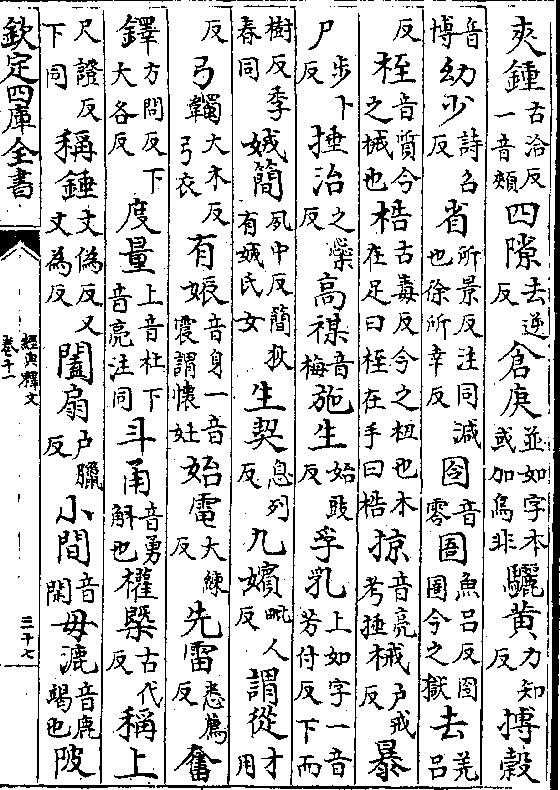 夾鍾古洽反一音頰四隙去逆反倉庚並如字本或加鳥非驪黃力知反搏榖
音博幼少詩召反省所景反注同減也徐所幸反囹音零圄魚呂反囹圄今之獄去羌呂
反桎音質今之械也梏古毒反今之杻也木在足曰桎在手曰梏掠音亮考捶械户戒反暴
尸步卜反捶治之橤反高禖音梅施生始豉反孚乳上如字一音芳付反下而
樹反季春同娀簡夙中反簡狄有娀氏女生契息列反九嬪毗人反謂從才用
反弓韣大木反弓衣有娠音身一音震謂懷妊始電大練反先雷悉薦反奮
鐸方問反下大各反度量上音杜下音亮注同斗甬音勇斛也權槩古代反稱上
尺證反下同稱錘丈偽反又丈為反闔扇户臘反小間音閑毋漉音鹿竭也陂
欽定四庫全書
經典釋文
卷十一
三十七